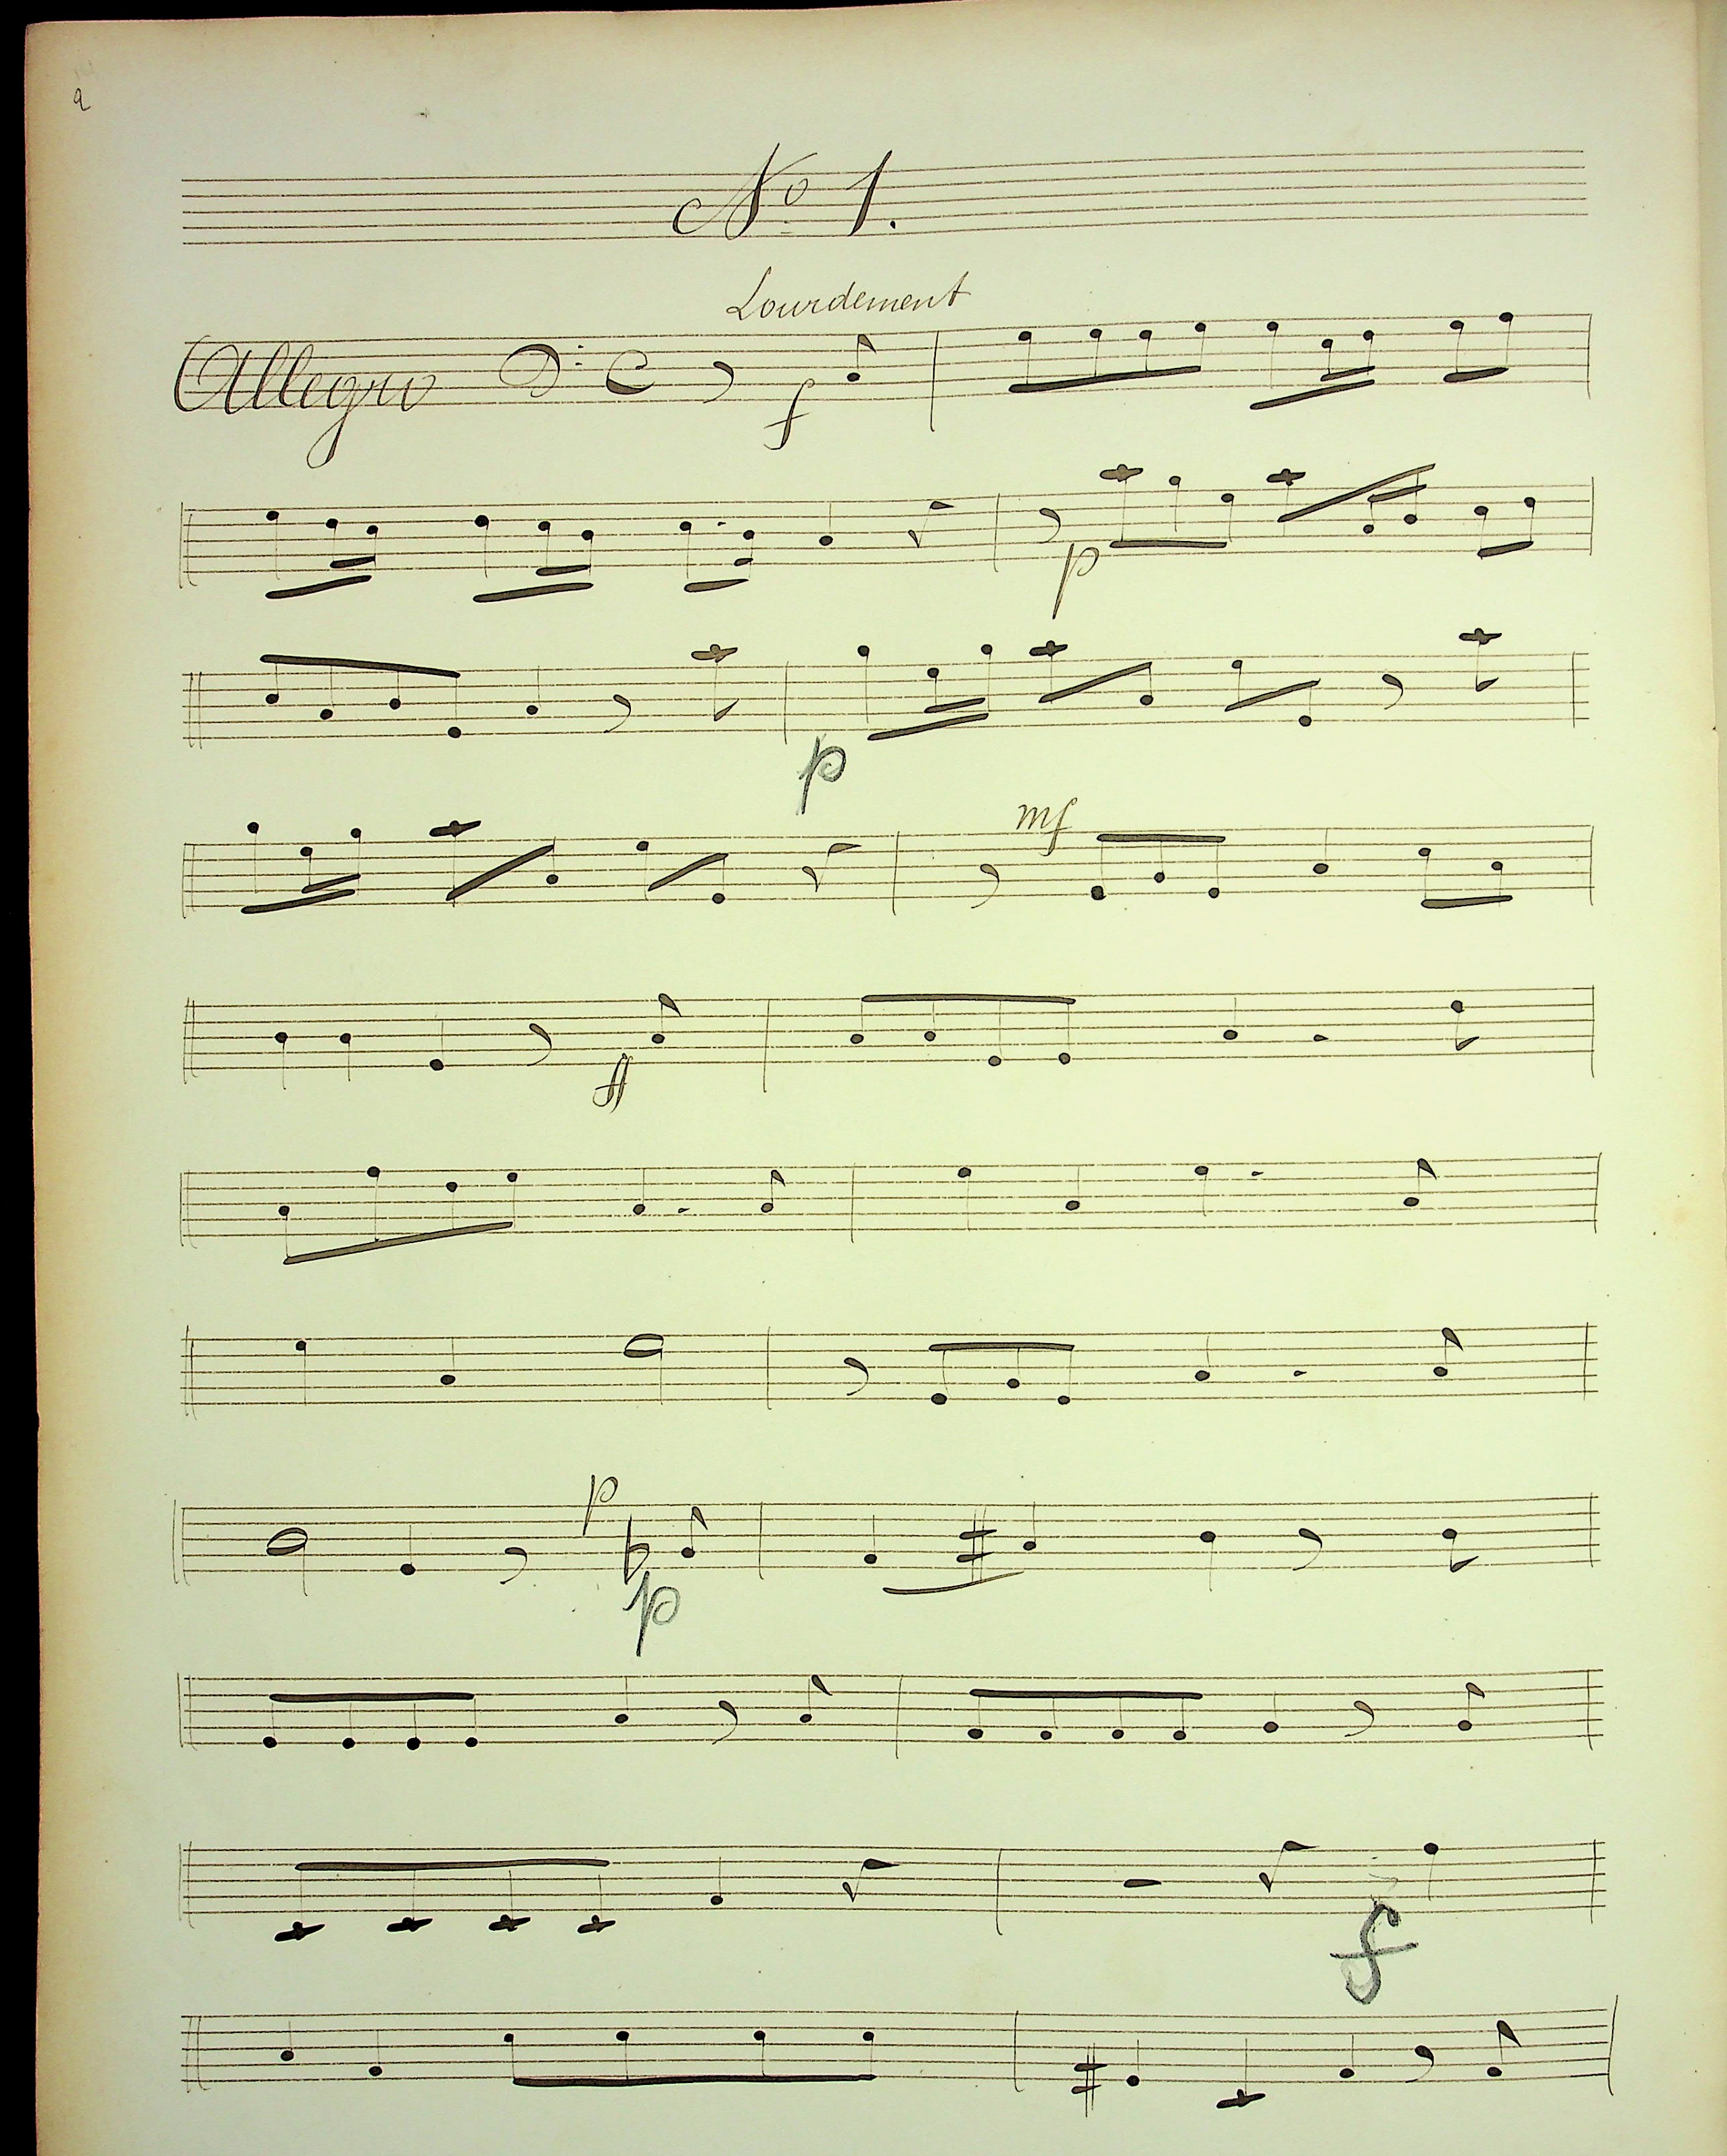 2
No 1.
Lourdement
Allegro f
p
p
mf
ff
p
p
f